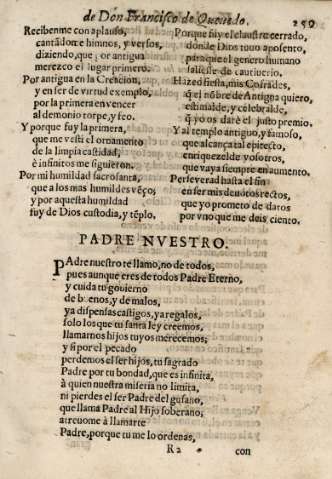 de Don Francisco de Quevedo. 259
Recibenme con aplauso,
cantādome himnos, y versos,
diziendo, que por antigua
merezco el lugar primero.
Por antigua en la Creacion,
y en ser de virtud exemplo,
por la primera en vencer
al demonio torpe, y feo.
Y porque fuy la primera,
que me vesti el ornamento
de la limpia castidad,
è infinitos me siguieron.
Por mi humildad sacrosanta,
que a los mas humildes vēço,
y por aquesta humildad
fuy de Dios custodia, y tēplo.
Porque fuy el claustro cerrado,
donde Dios tuuo aposento,
para que el genero humano
saliesse de cautiuerio.
Hazed fiesta, mis Cofrades,
q̄ el nōbre de Antigua quiero,
estimalde, y celebralde,
q̄ yo os darè el justo premio.
Y al templo antiguo, y famoso,
que alcança tal
enriquezelde vosotros,
que vaya siempre en aumento.
Perseverad hasta el fin
en ser mis deuotos rectos,
que yo prometo de daros
por vno que me deis, ciento.
PADRE NVESTRO.
PAdre nuestro te llamo, no de todos,
pues aunque eres de todos Padre Eterno,
y cuida tu gouierno
de buenos, y de malos,
ya dispensas castigos, ya regalos,
solo los que tu santa ley creemos,
llamarnos hijos tuyos merecemos;
y si por el pecado
perdemos el ser hijos, tu sagrado
Padre por tu bondad, que es infinita,
à quien nuestra miseria no limita,
ni pierdes el ser Padre del gusano,
que llama Padre al Hijo soberano;
atreuome à llamarte
Padre, porque tu me lo ordenas,
R 2 con